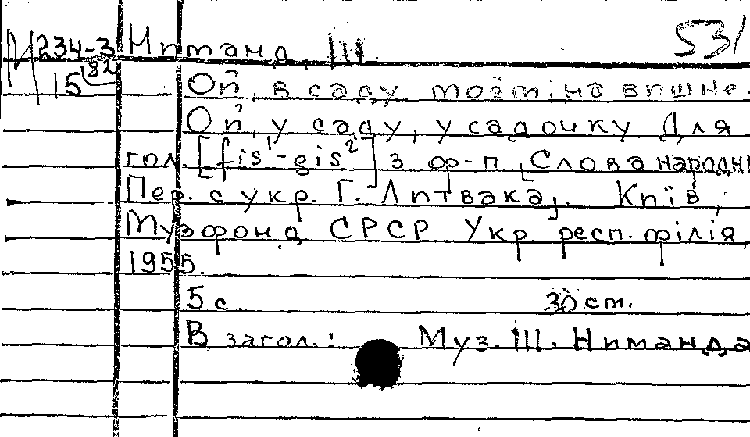 М 234-3 Ниманд, Ш. 531
15182 Ой, в саду та й тіна вишне.
Ой, у саду, у садочку Для
гол. [fis¹-gis²] з ф-п, Слова народні
Пер. с укр. Г. Литвака,. Київ,
Музфонд СРСР Укр респ. філія,
1955.
5 с 30 ст.
В загол.: Муз. Ш. Ниманда